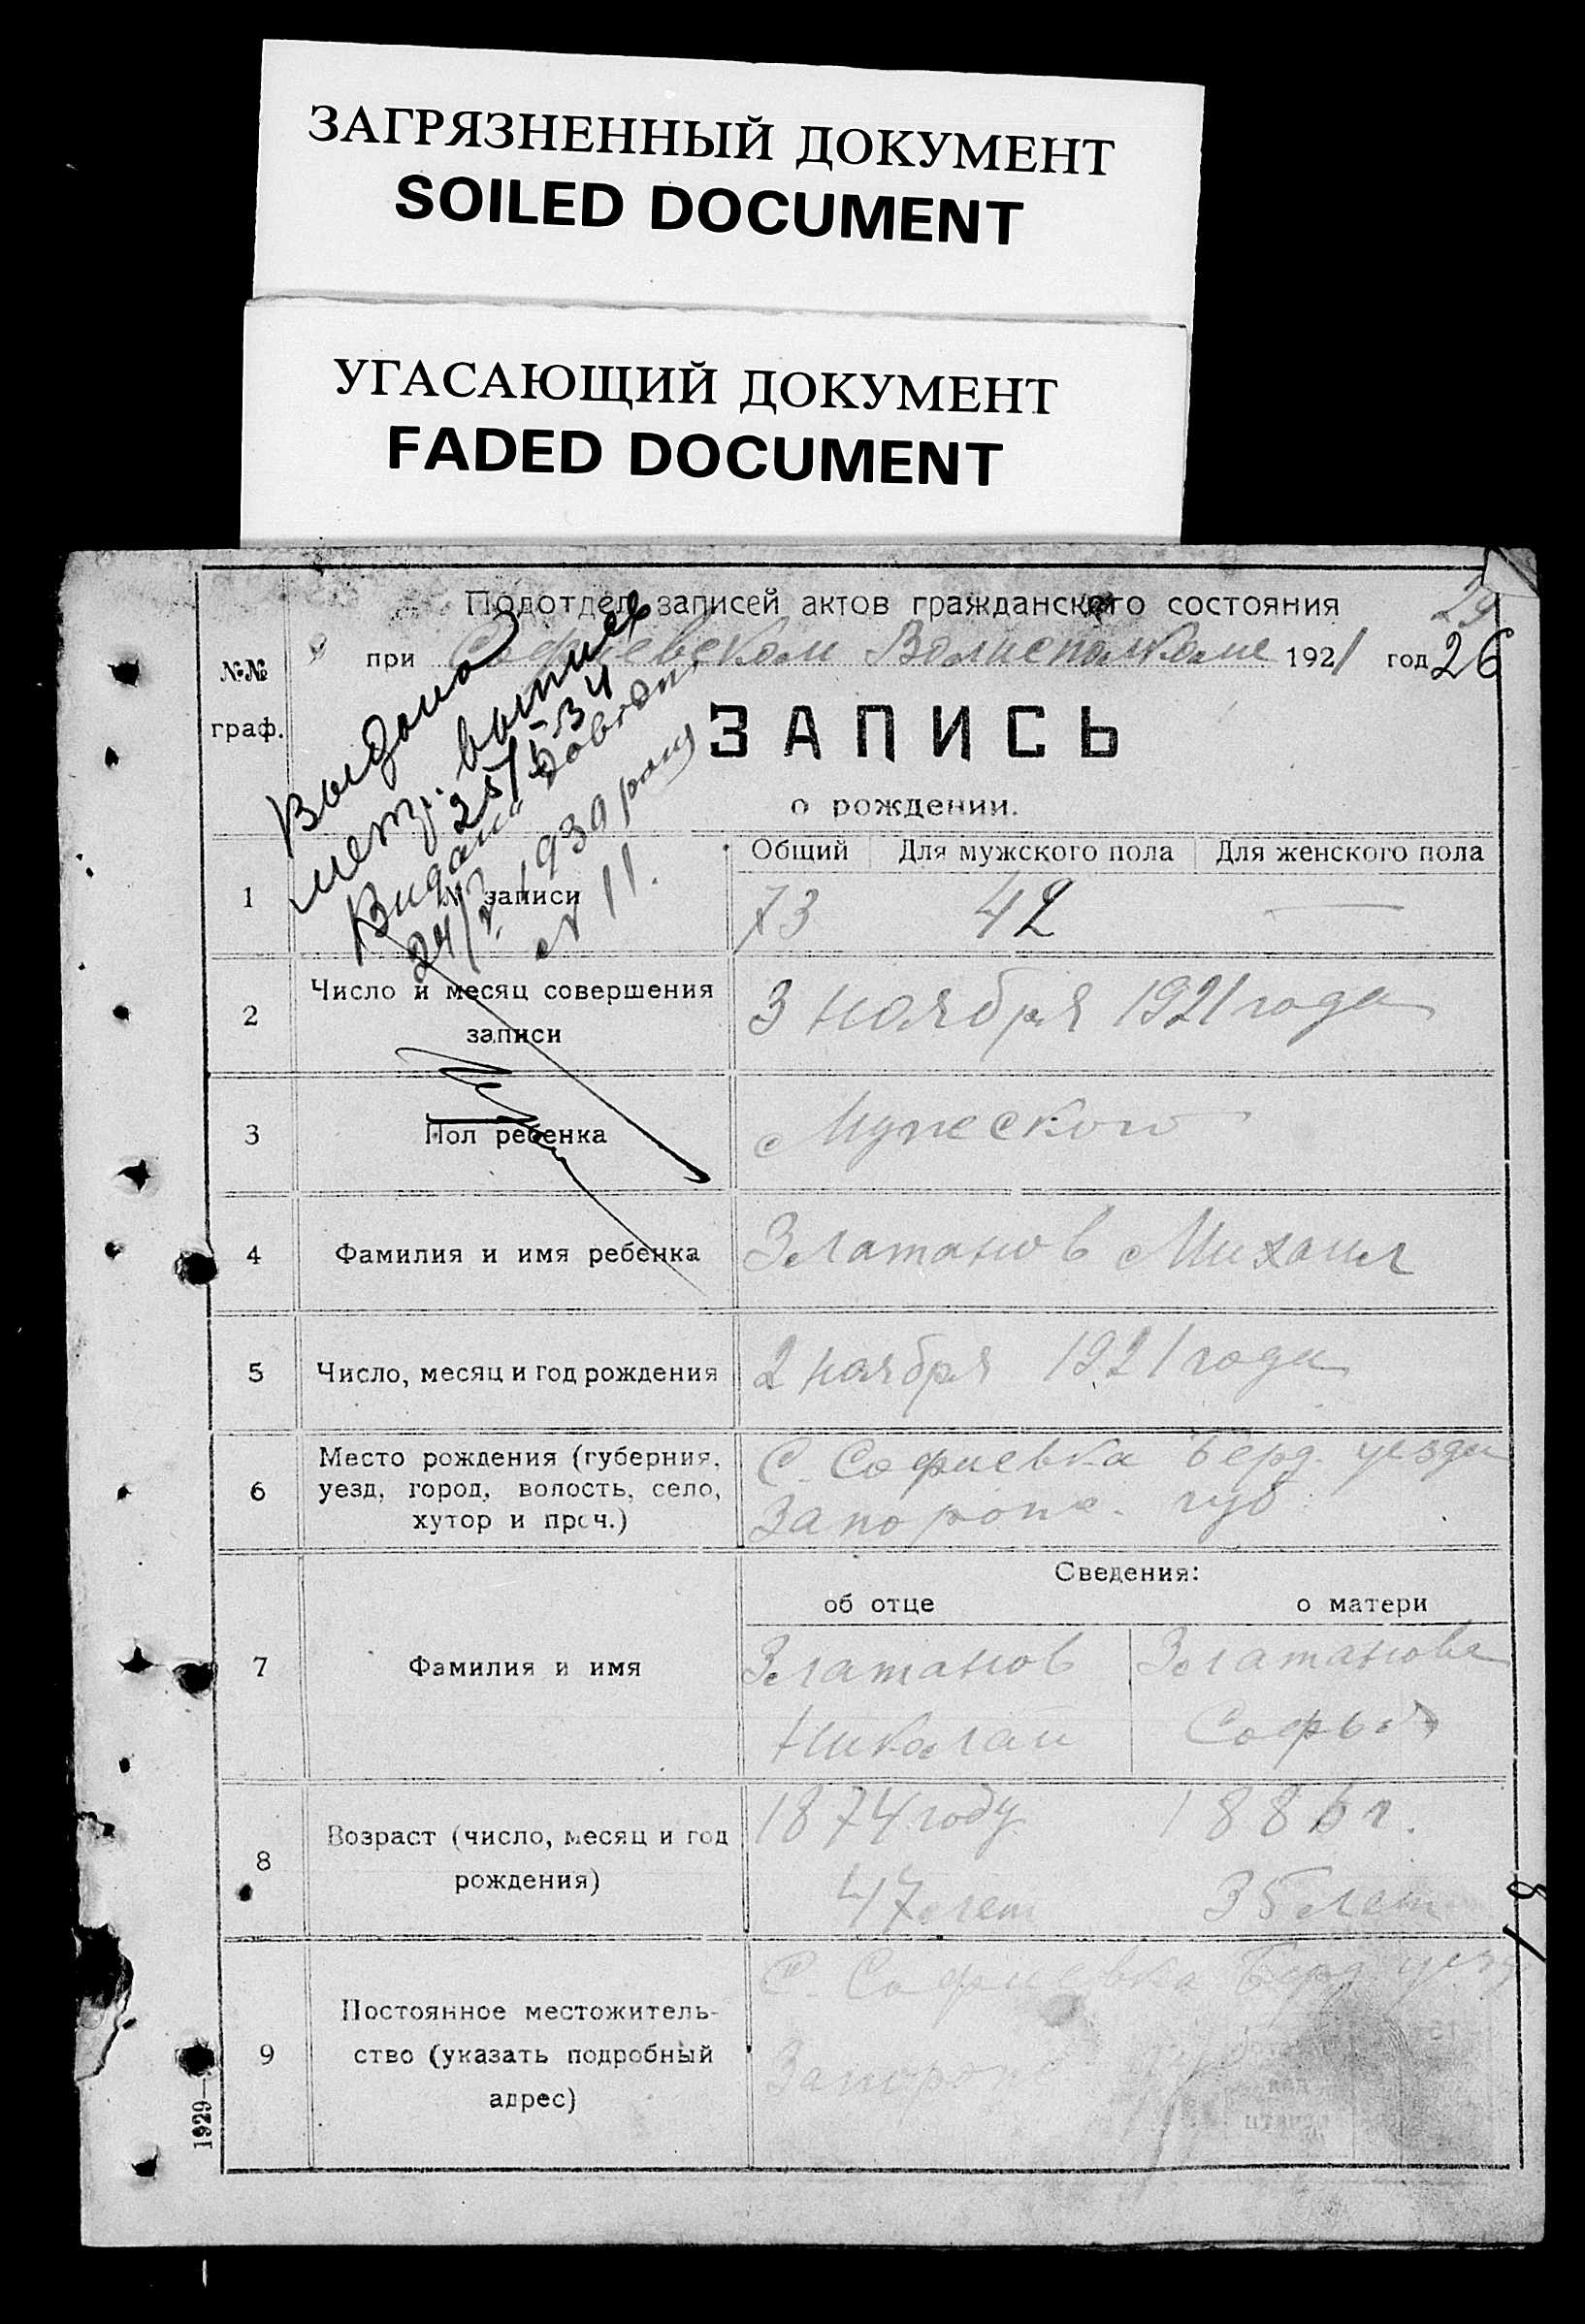 ЗАГРЯЗНЕННЫЙ ДОКУМЕНТ
SOILED DOCUMENT
УГАСАЮЩИЙ ДОКУМЕНТ
FADED DOCUMENT
Подотдел записей актов гражданского состояния
29
при Софиевском Волисполкоме 1921 год 26
№№
граф.
ЗАПИСЬ
о рождении.
Выдана
метр. выпись
25/V-34
Видано
24/V 1939 року
№ 11.
Общий Для мужского пола Для женского пола
1 № записи 73 42 —
2 Число и месяц совершения
записи
3 ноября 1921 года
3 Пол ребенка Мужеского
4 Фамилия и имя ребенка Златанов Михаил
5 Число, месяц и год рождения 2 ноября 1921 года
6 Место рождения (губерния,
уезд, город, волость, село,
хутор и проч.)
С. Софиевка Берд. уезда
Запорож. губ.
Сведения:
об отце о матери
7 Фамилия и имя Златанов Златанова
Николай Софья
8 Возраст (число, месяц и год
рождения)
1874 году 1886 г.
47 лет 35 лет
9 Постоянное местожитель-
ство (указать подробный
адрес)
С Софиевка Берд. уезд
Запорож
1929